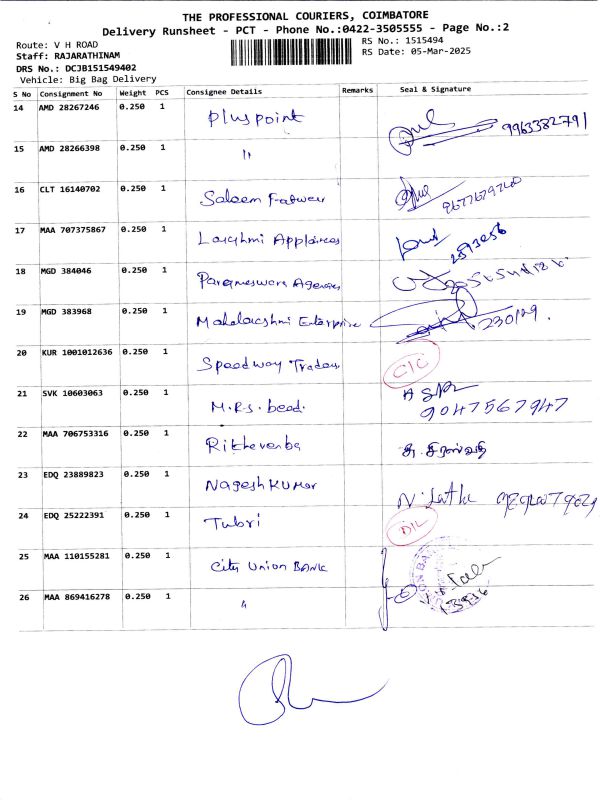 THE PROFESSIONAL COURIERS, COIMBATORE
Delivery Runsheet - PCT - Phone No.:0422-3505555 - Page No.:2
Route: V H ROAD
RS No.: 1515494
Staff: RAJARATHINAM
RS Date: 05-Mar-2025
DRS No.: DCJB151549402
Vehicle: Big Bag Delivery
S No Consignment No Weight PCS Consignee Details Remarks Seal & Signature
14 AMD 28267246 0.250 1 Pluspoint 9963382791
15 AMD 28266398 0.250 1 "
16 CLT 16140702 0.250 1 Saleem
17 MAA 707375867 0.250 1 Laxghmi Appliances
18 MGD 384046 0.250 1 Parameswara Agencies
19 MGD 383968 0.250 1 Mahalacshmi Enterprise
20 KUR 1001012636 0.250 1 Speedway Traders C/C
21 SVK 10603063 0.250 1 M.R.S. bead. 9047567947
22 MAA 706753316 0.250 1
23 EDQ 23889823 0.250 1 Nagesh Kumar N. Latha
24 EDQ 25222391 0.250 1 Tubri D/L
25 MAA 110155281 0.250 1 City Union BANK
26 MAA 869416278 0.250 1 "